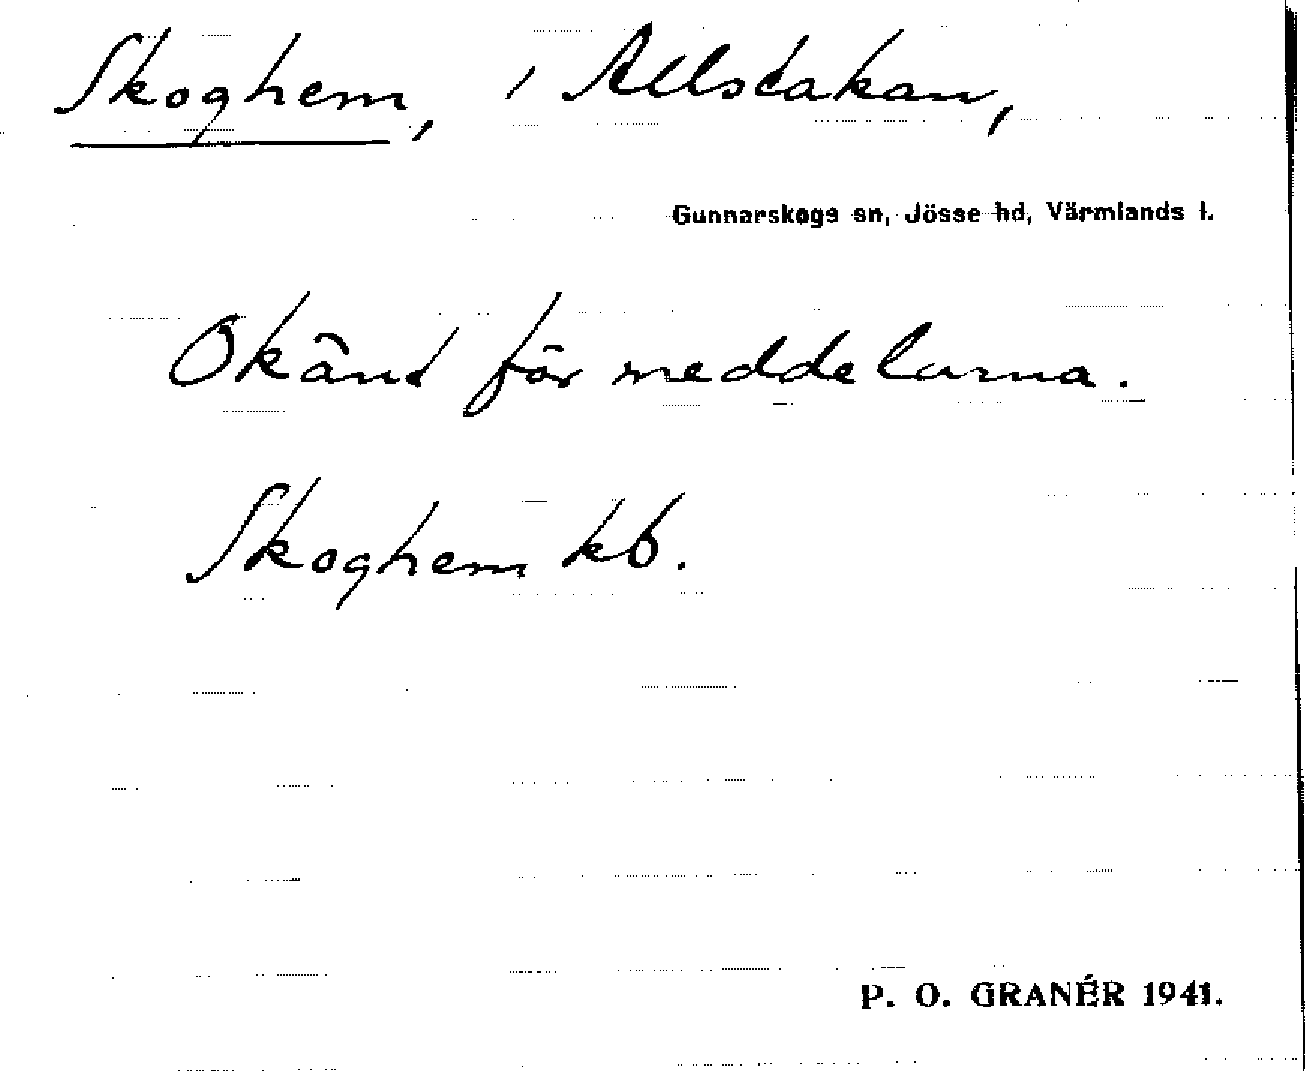 Skoghem, i Allstakan,
Gunnarskogs sn, Jösse hd, Värmlands l.
Okänd för meddelarna.
Skoghem kb.
P. O. GRANÉR 1941.